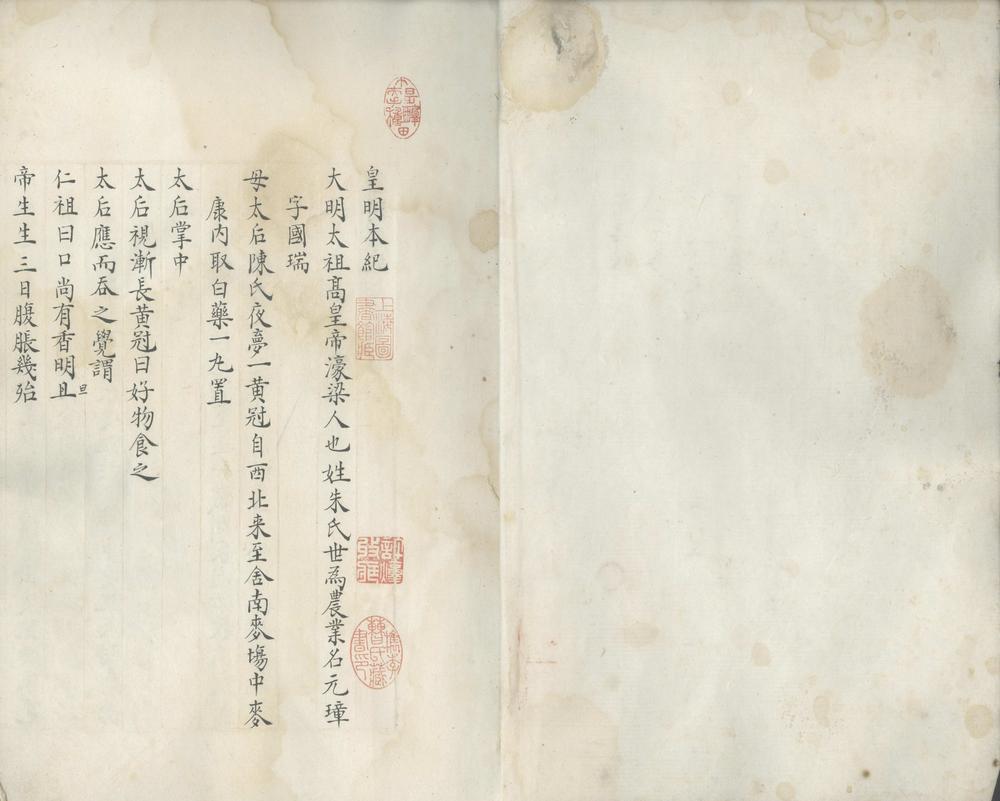 皇明本紀
大明太祖髙皇帝濠梁人也姓朱氏世為農業名元璋
字國瑞
母太后陳氏夜夢一黄冠自西北来至舍南麥塲中麥
康内取白藥一九置
太后掌中
太后視漸長黄冠曰好物食之
太后應而吞之覺謂
仁祖曰口尚有香明且旦
帝生生三日腹脹幾殆
上海圖書館藏
曹氏藏書印